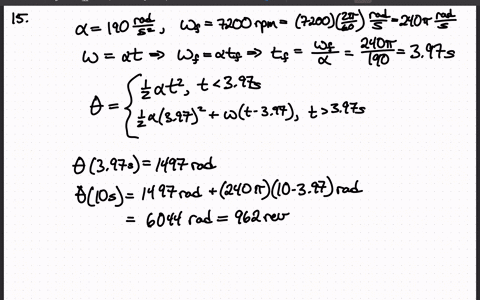 15. α = 190 rad/s², ω_f = 7200 rpm = (7200)(2π/60) rad/s = 240π rad/s
ω = αt ⇒ ω_f = αt_f ⇒ t_f = ω_f/α = 240π/190 = 3.97s
θ = { ½αt², t < 3.97s
½α(3.97)² + ω(t-3.97), t > 3.97s
θ(3.97s) = 1497 rad
θ(10s) = 1497 rad + (240π)(10-3.97) rad
= 6044 rad = 962 rev